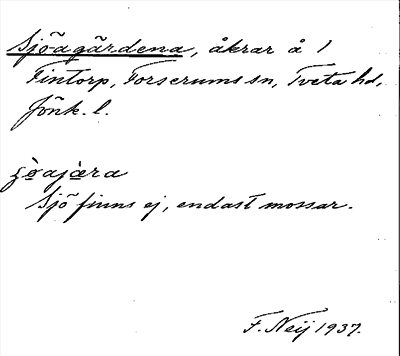 Sjöagärdena, åkrar å 1
Fintorp, Forserums sn, Tveta hd,
Jönk. l.
Sjö finns ej, endast mossar.
F. Neij 1937.